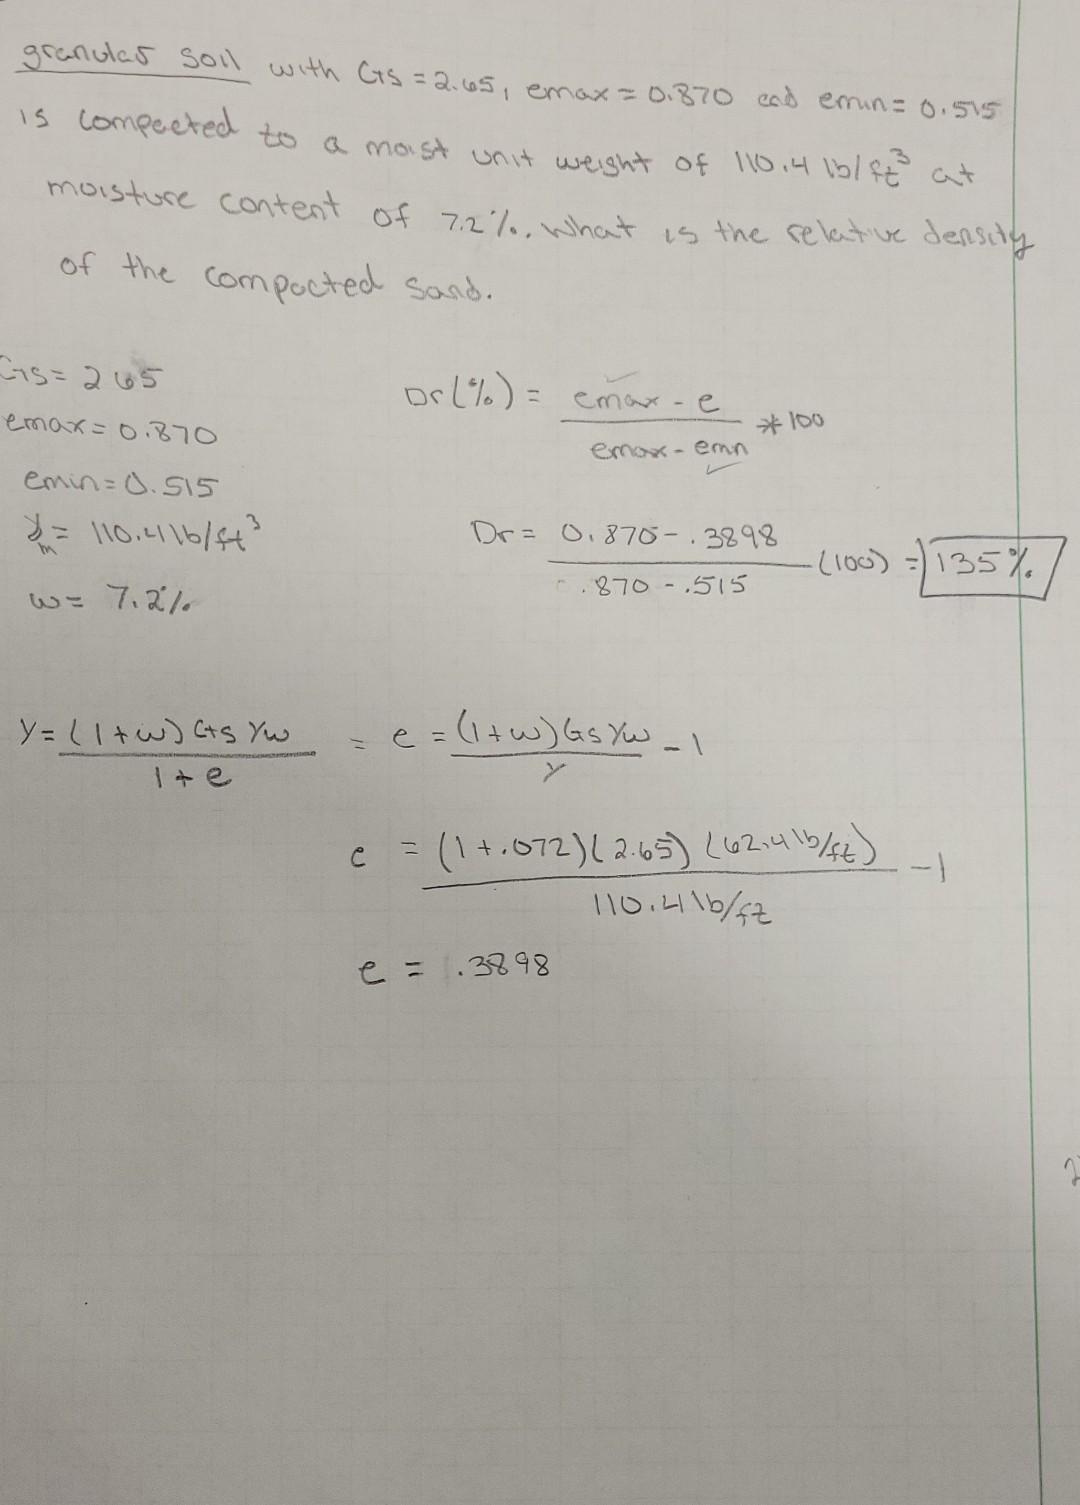 granular soil with Gs = 2.65, emax = 0.870 and emin = 0.515
is compacted to a moist unit weight of 110.4 lb/ft³ at
moisture content of 7.2%. What is the relative density
of the compacted sand.
Gs = 2.65
emax = 0.870
emin = 0.515
γm = 110.4 lb/ft³
w = 7.2%
Dr(%) = emax - e / emax - emn * 100
Dr = 0.870 - .3898 / .870 - .515 (100) = 135%
γ = (1 + w) Gs γw / 1 + e = e = (1 + w) Gs γw / γ - 1
e = (1 + .072)(2.65)(62.4 lb/ft) / 110.4 lb/ft - 1
e = .3898